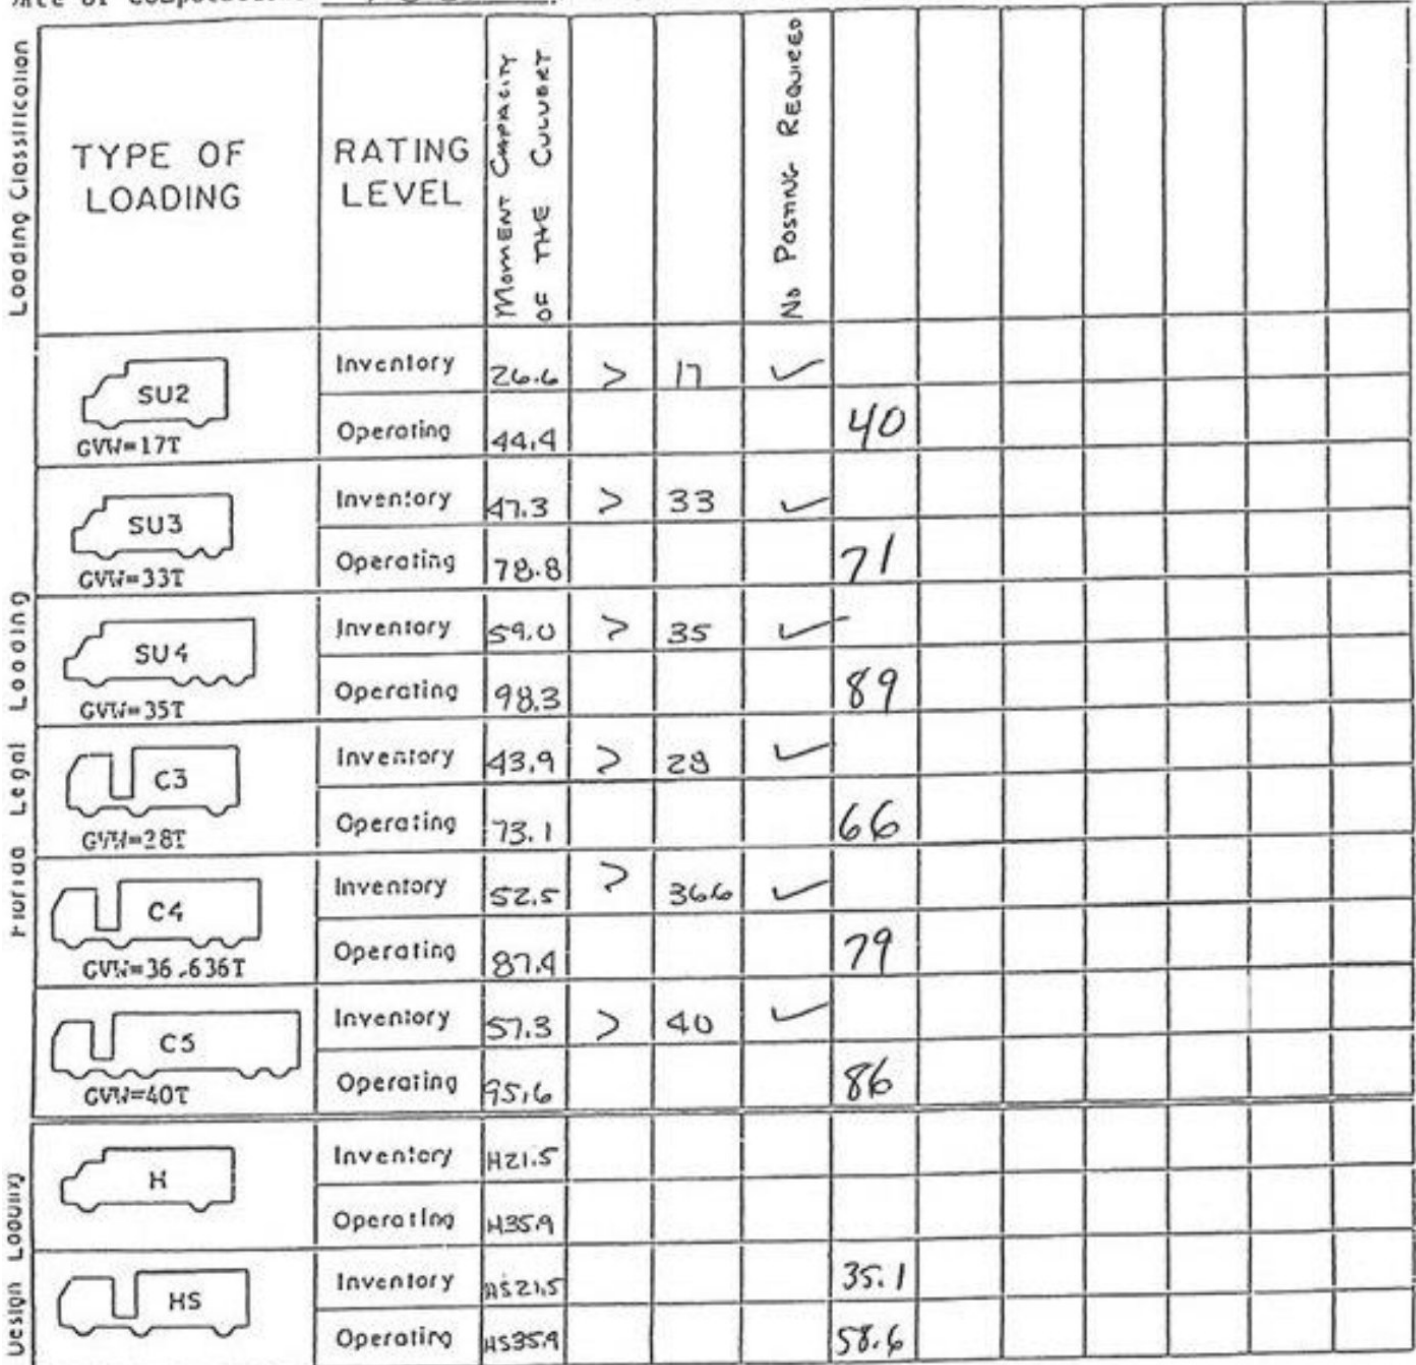 Loading Classification
TYPE OF
LOADING
RATING
LEVEL
MOMENT CAPACITY
OF THE CULVERT
NO POSTING REQUIRED
Florida Legal Loading
SU2
GVW=17T
Inventory 26.6 > 17 ✓
Operating 44.4 40
SU3
GVW=33T
Inventory 47.3 > 33 ✓
Operating 78.8 71
SU4
GVW=35T
Inventory 59.0 > 35 ✓
Operating 98.3 89
C3
GVW=28T
Inventory 43.9 > 28 ✓
Operating 73.1 66
C4
GVW=36.636T
Inventory 52.5 > 36.6 ✓
Operating 87.4 79
C5
GVW=40T
Inventory 57.3 > 40 ✓
Operating 95.6 86
Design Loading
H
Inventory H21.5
Operating H35.9
HS
Inventory HS21.5 35.1
Operating HS35.9 58.6